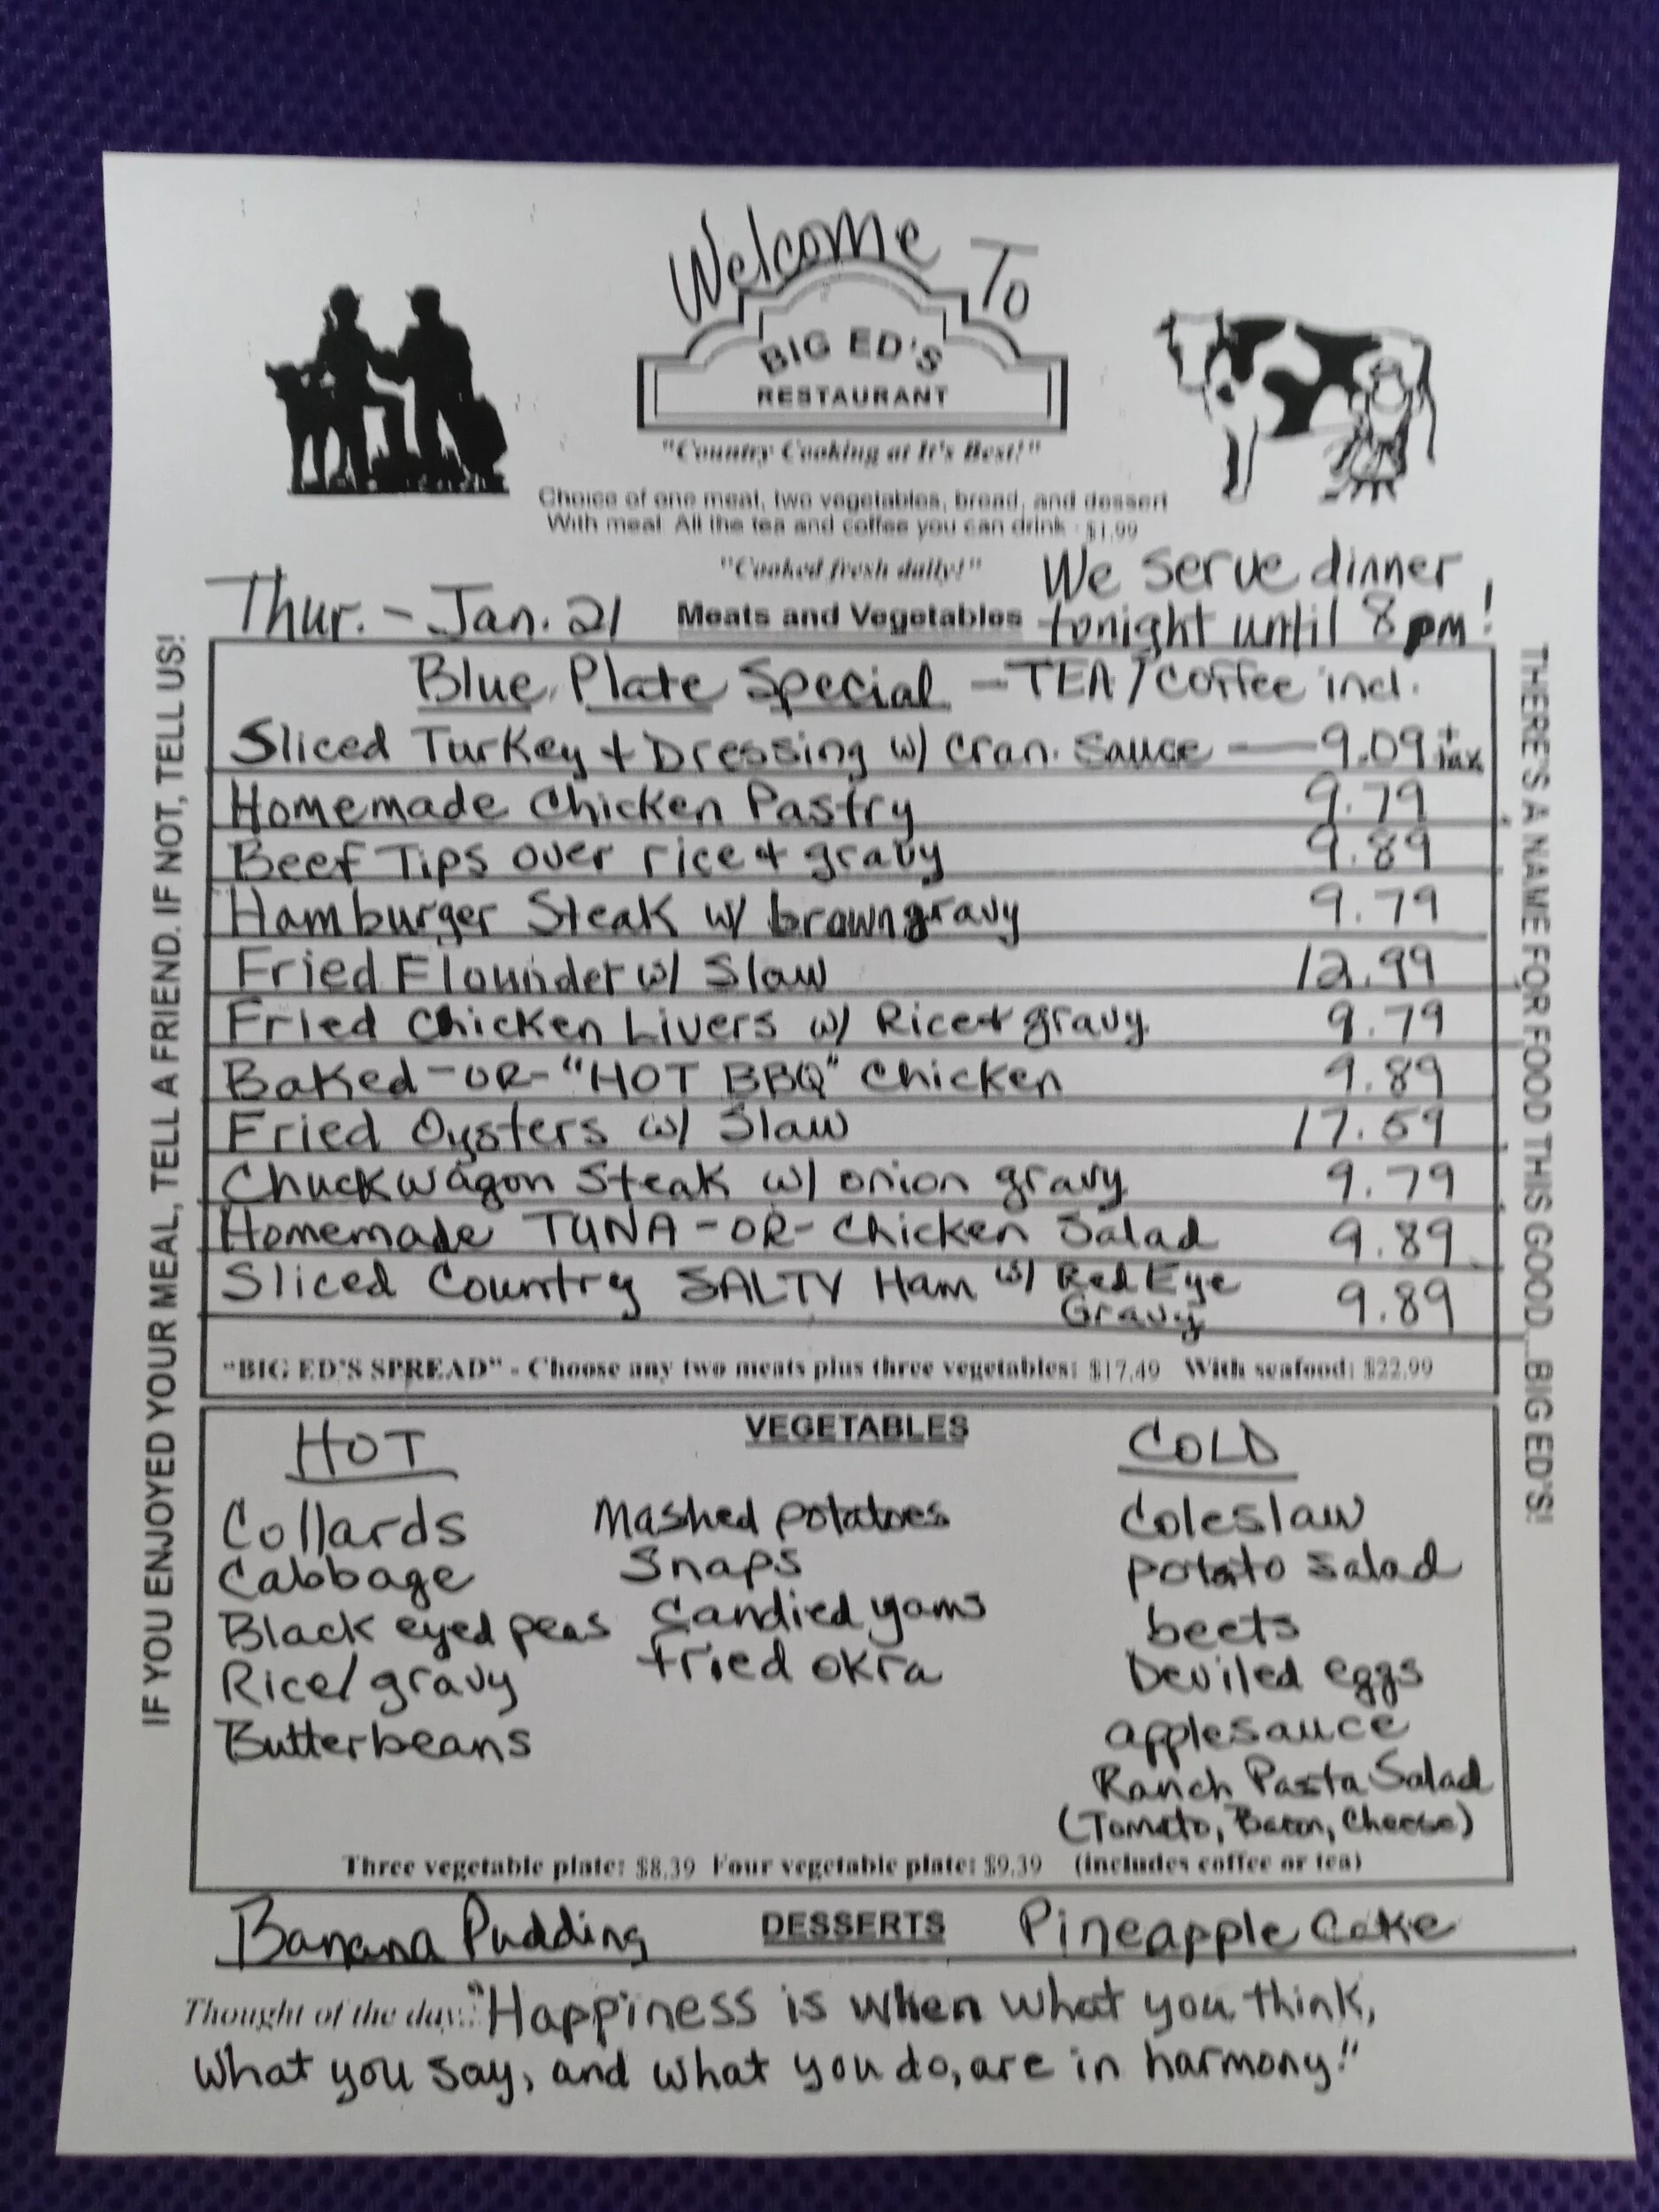 Welcome To
BIG ED'S
RESTAURANT
"Country Cooking at It's Best!"
Choice of one meat, two vegetables, bread, and dessert
With meal: All the tea and coffee you can drink - $1.99
"Cooked fresh daily!"
We serve dinner
tonight until 8 pm!
Thur. - Jan. 21
Meats and Vegetables
Blue Plate Special - TEA/coffee incl.
Sliced Turkey + Dressing w/ cran. sauce — 9.09 + tax
Homemade Chicken Pastry 9.79
Beef Tips over rice + gravy 9.89
Hamburger Steak w/ brown gravy 9.79
Fried Flounder w/ Slaw 12.99
Fried Chicken Livers w/ Rice + gravy 9.79
Baked -OR- "HOT BBQ" Chicken 9.89
Fried Oysters w/ Slaw 17.59
Chuckwagon Steak w/ onion gravy 9.79
Homemade TUNA -OR- Chicken Salad 9.89
Sliced Country SALTY Ham w/ Red Eye
Gravy 9.89
"BIG ED'S SPREAD" - Choose any two meats plus three vegetables: $17.49 With seafood: $22.99
VEGETABLES
HOT
Collards
Cabbage
Black eyed peas
Rice/gravy
Butterbeans
Mashed potatoes
Snaps
Candied yams
Fried okra
COLD
Coleslaw
potato salad
beets
Deviled eggs
applesauce
Ranch Pasta Salad
(Tomato, Bacon, Cheese)
Three vegetable plate: $8.39 Four vegetable plate: $9.39 (includes coffee or tea)
Banana Pudding DESSERTS Pineapple Cake
Thought of the day: "Happiness is when what you think,
what you say, and what you do, are in harmony!"
IF YOU ENJOYED YOUR MEAL, TELL A FRIEND. IF NOT, TELL US!
THERE'S A NAME FOR FOOD THIS GOOD...BIG ED'S!